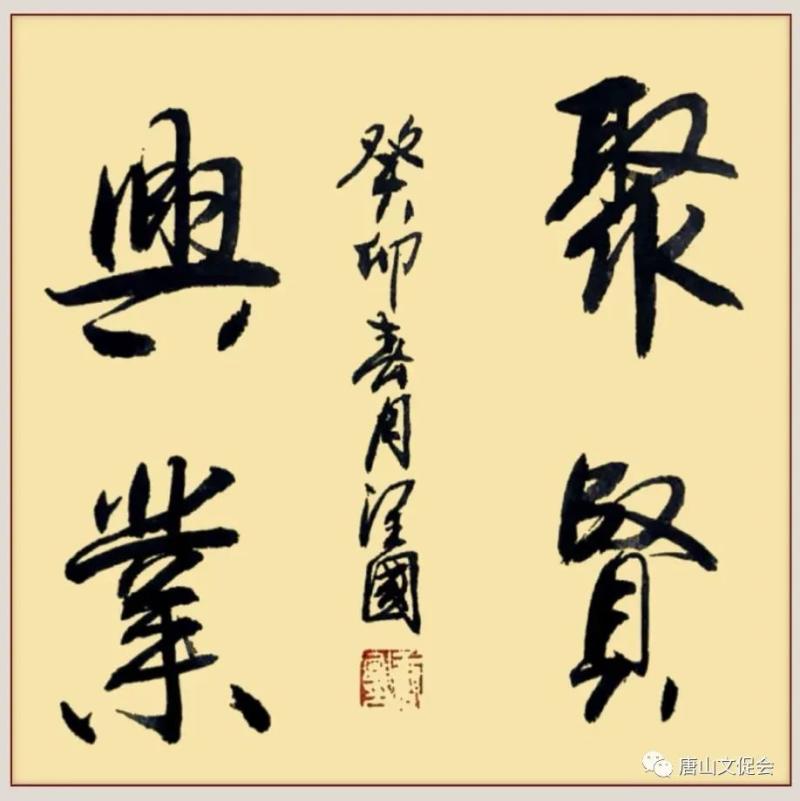 聚賢
興業
癸卯春月
國
唐山文促会